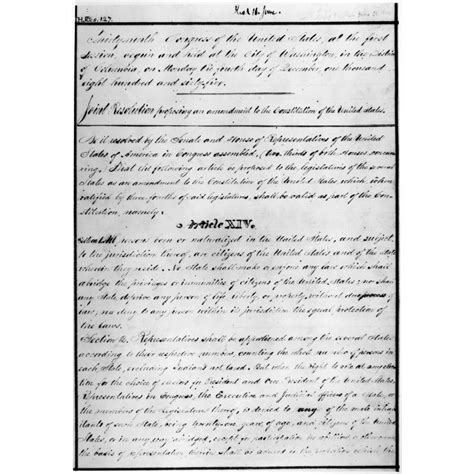 H.Res. 127.
Recd 16 June
Thirty-ninth Congress of the United States, at the first
Session, begun and held at the City of Washington, in the District
of Columbia, on Monday the fourth day of December, one thousand
eight hundred and sixty-five,
Joint Resolution proposing an amendment to the Constitution of the United States.
Be it resolved by the Senate and House of Representatives of the United
States of America in Congress assembled, (two thirds of both Houses concur-
ring,) That the following article be proposed to the legislatures of the several
States as an amendment to the Constitution of the United States which, when
ratified by three fourths of said legislatures, shall be valid as part of the Con-
stitution, namely:
Article XIV.
Section 1. All persons born or naturalized in the United States, and subject
to the jurisdiction thereof, are citizens of the United States and of the State
wherein they reside. No State shall make or enforce any law which shall
abridge the privileges or immunities of citizens of the United States; nor shall
any State deprive any person of life, liberty, or property, without due process of
law, nor deny to any person within its jurisdiction the equal protection of
the laws.
Section 2. Representatives shall be apportioned among the several States
according to their respective numbers, counting the whole number of persons in
each State, excluding Indians not taxed. But when the right to vote at any elec-
tion for the choice of electors for President and Vice President of the United States,
Representatives in Congress, the Executive and Judicial officers of a State, or
the members of the Legislature thereof, is denied to any of the male inhab-
itants of such State, being twenty-one years of age, and citizens of the United
States, or in any way abridged, except for participation in rebellion or other crime,
the basis of representation therein shall be reduced in the proportion which the